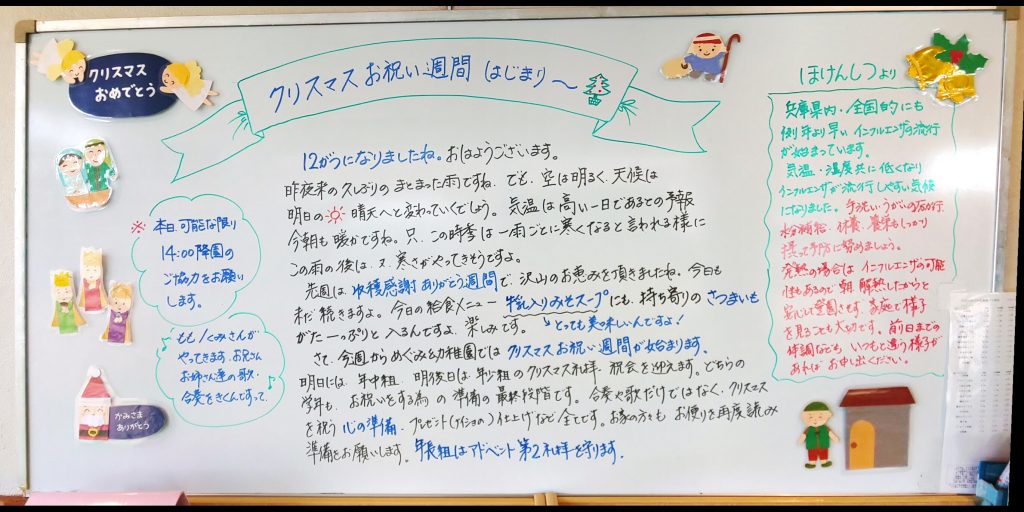 クリスマス
おめでとう
クリスマスお祝い週間 はじまり〜
12がつになりましたね。おはようございます。
昨夜来の久しぶりのまとまった雨ですね。でも、空は明るく、天候は
明日の 晴天へと変わっていくでしょう。気温は高い一日であるとの予報
今朝も暖かですね。只、この時季は一雨ごとに寒くなると言われる様に
この雨の後は、又、寒さがやってきそうですよ。
先週は、収穫感謝ありがとう週間で、沢山のお恵みを頂きましたね。今日も
まだ続きますよ。今日の給食メニュー 牛乳入りみそスープにも、持ち寄りのさつまいも
がたーっぷりと入るんですよ。楽しみです。
とっても美味しいんですよ!
さて、今週からめぐみ幼稚園ではクリスマスお祝い週間が始まります。
明日には、年中組、明後日は年少組のクリスマス礼拝、祝会を迎えます。どちらの
学年も、お祝いをする為の準備の最終段階です。合奏や歌だけではなく、クリスマス
を祝う心の準備、プレゼント の仕上げなど全てです。お家の方も お便りを再度読み
準備をお願いします。年長組はアドベント第2礼拝を守ります。
※ 本日、可能な限り
14:00降園の
ご協力をお願い
します。
もも くみさんが
やってきます。お兄さん
お姉さん達の歌・
合奏をきくんですって。
かみさま
ありがとう
ほけんしつより
兵庫県内・全国的にも
例年より早いインフルエンザの流行
が始まっています。
気温・湿度共に低くなり
インフルエンザが流行しやすい気候
になりました。手洗い・うがいの励行、
水分補給、休養、栄養もしっかり
摂って予防に努めましょう。
発熱の場合はインフルエンザの可能
性もあるので朝、解熱したからと
急いで登園させず、家庭で様子
を見ることも大切です。前日までの
体調なども いつもと違う様子が
あればお申し出ください。